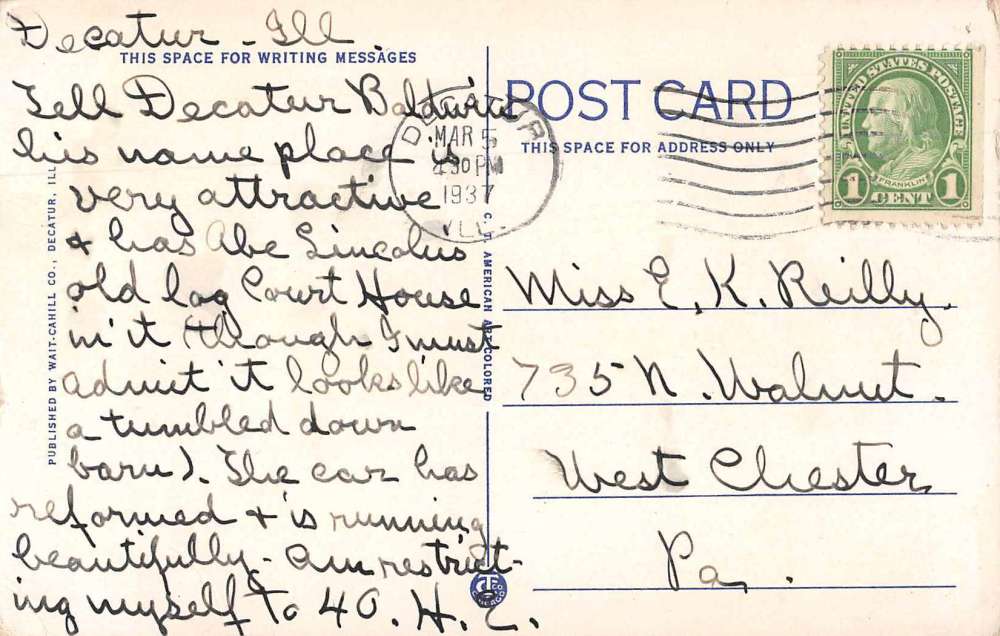 Decatur - Ill.
THIS SPACE FOR WRITING MESSAGES
Tell Decatur Baldwin
his name place is
very attractive
& has Abe Lincoln's
old log Court House
in it though I must
admit it looks like
a tumbled down
barn). The car has
reformed & is running
beautifully - Am restrict-
ing myself to 40. H. E.
PUBLISHED BY WAIT-CAHILL CO., DECATUR, ILL.
C. T. AMERICAN ART COLORED
POST CARD
THIS SPACE FOR ADDRESS ONLY
DECATUR
MAR 5
4 30 PM
1937
ILL.
UNITED STATES POSTAGE
FRANKLIN
1 CENT 1
Miss E. K. Reilly.
735 N. Walnut.
West Chester,
Pa.
CT CO
CHICAGO